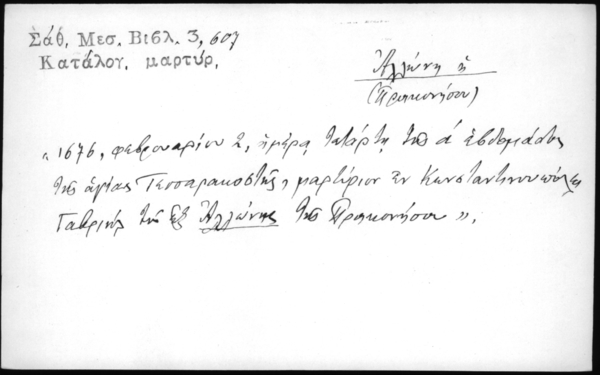 Σάθ, Μεσ. Βιβλ. 3, 607
Κατάλογ. μαρτύρ,
Ἀλλώνη ἡ
(Προικονήσου)
"1676, φεβρουαρίου 2, ἡμέρᾳ τετάρτῃ τῆς α΄ ἑβδομάδος
τῆς ἁγίας Τεσσαρακοστῆς, μαρτύριον ἐν Κωνσταντινουπόλει
Γαβριὴλ τῆς ἐξ Ἀλλώνης τῆς Προικονήσου".